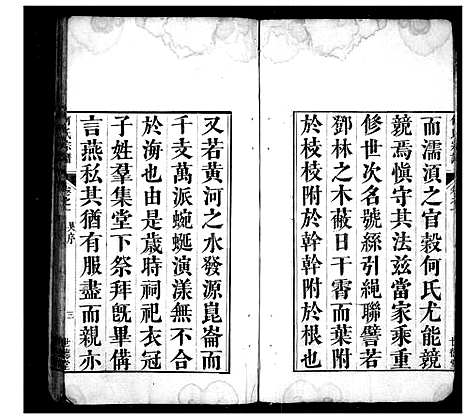 而濡滇之官穀何氏尤能兢
兢焉慎守其法兹當家乘重
修世次名號絲引繩聯譬若
鄧林之木蔽日干霄而葉附
於枝枝附於幹幹附於根也
又若黃河之水發源崑崙而
千支萬派蜿蜒演漾無不會
於海也是歲時祠祀衣冠
子姓羣集堂下祭拜旣畢偹
言燕私其猶有服盡而親亦
何氏宗譜
吳序
三
世德堂